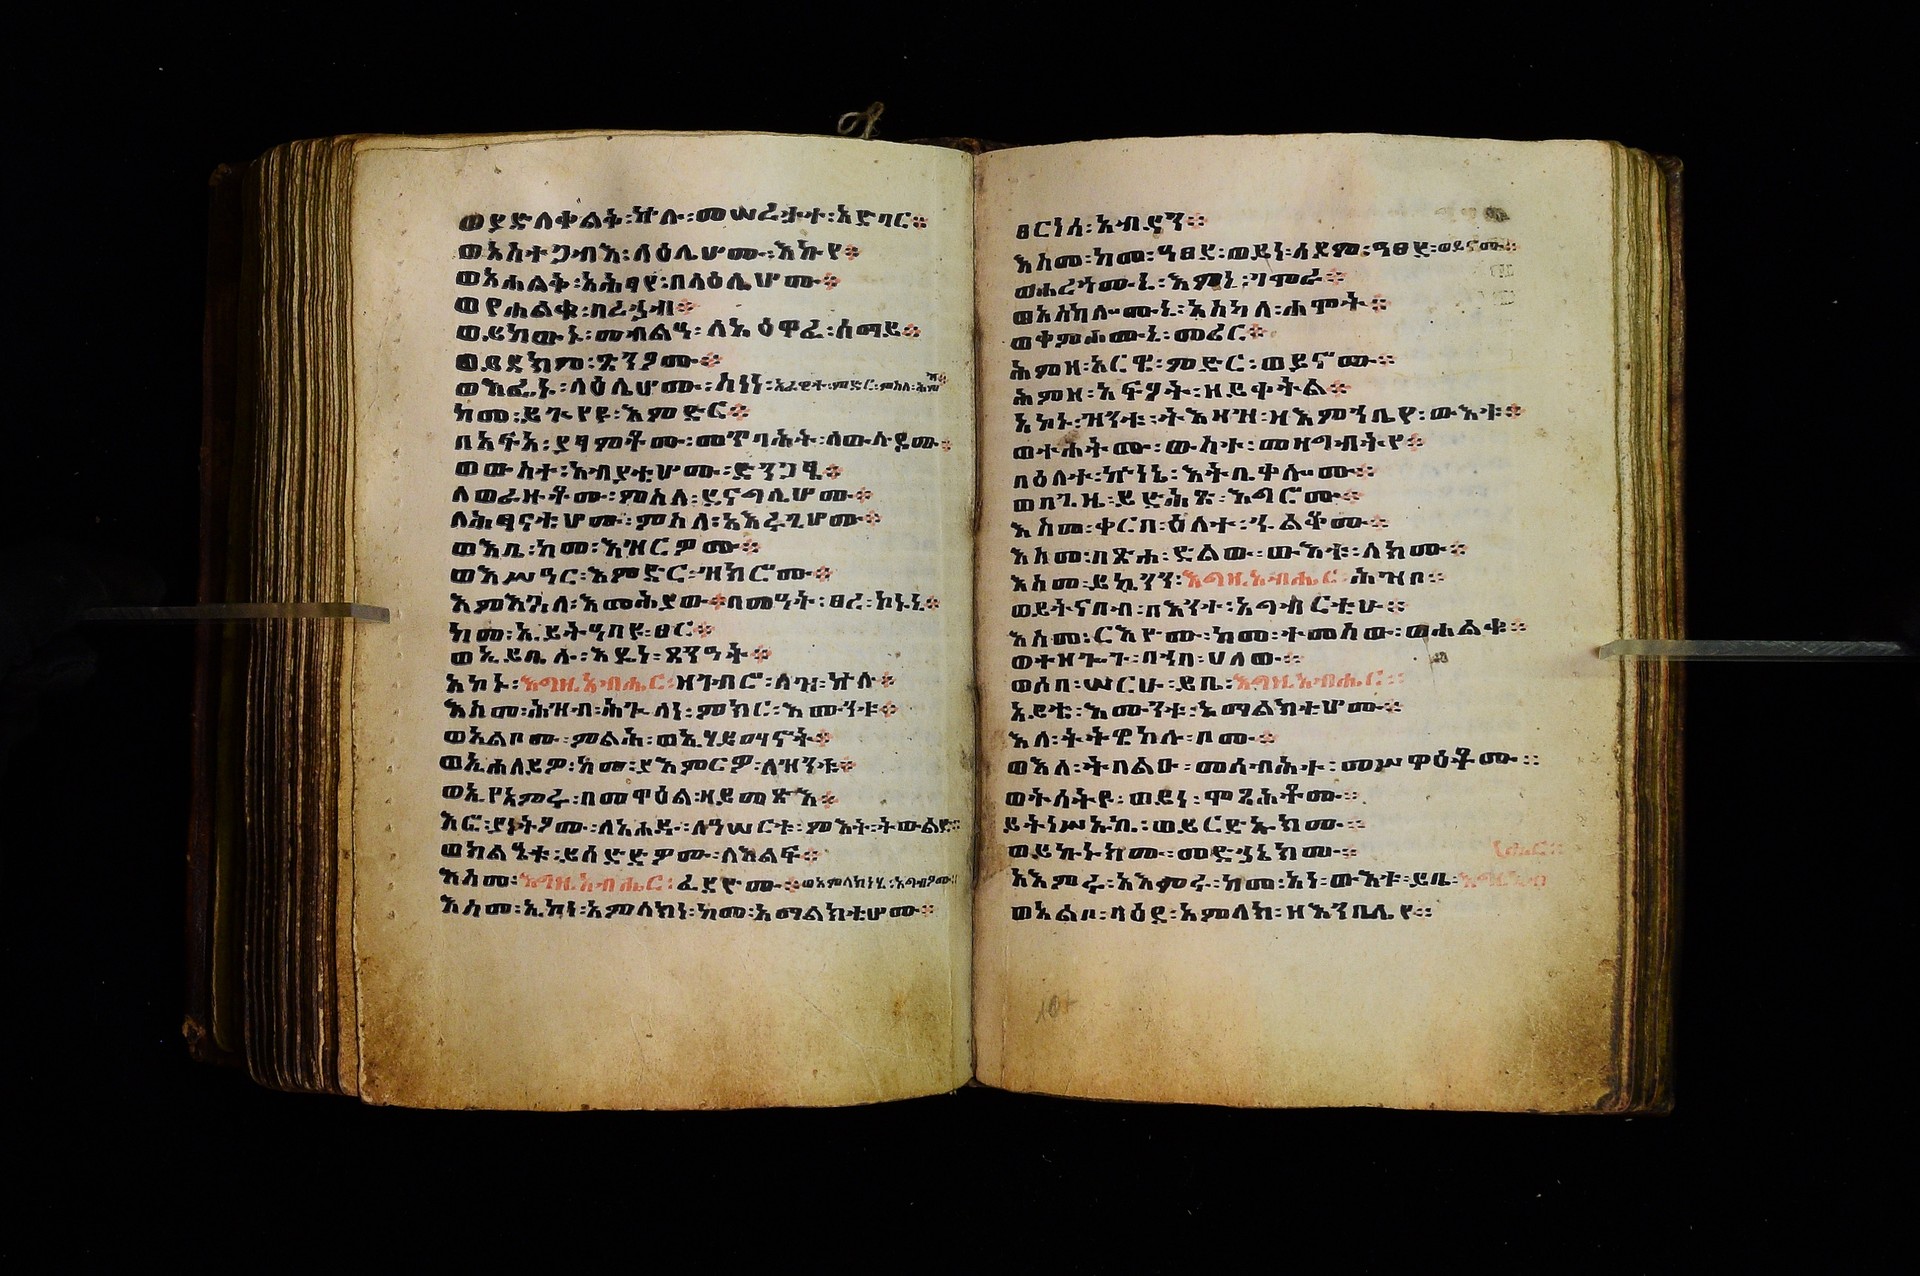 ወያድለቀልቅ፡ኵሉ፡መሠረታተ፡አድባር፨
ወአስተጋብእ፡ላዕሌሆሙ፡እኩየ፨
ወአሐልቅ፡አሕፃየ፡በላዕሌሆሙ፨
ወየሐልቁ፡በረኃብ፨
ወይከውኑ፡መብልዓ፡ለአዕዋፈ፡ሰማይ፨
ወይደክም፡ጽንዖሙ፨
ወእፌኑ፡ላዕሌሆሙ፡ስነነ፡አራዊተ፡ምድር፡ምስለ፡ሕምዝ
ከመ፡ይጕየዩ፡እምድር፨
በአፍአ፡ያፃምቶሙ፡መጥባሕት፡ለውሉዶሙ፨
ወውስተ፡አብያቲሆሙ፡ድንጋፄ፨
ለወራዙቶሙ፡ምስለ፡ደናግሊሆሙ፨
ለሕፃናቲሆሙ፡ምስለ፡አእሩጊሆሙ፨
ወእቤ፡ከመ፡እዝርዎሙ፨
ወእሥዓር፡እምድር፡ዝክሮሙ፨
እምእጓለ፡እመሕያው፨በመዓት፡ፀረ፡ኮነኒ፨
ከመ፡ኢይትዓበዩ፡ፀር፨
ወኢይቤሉ፡እዴነ፡ጸንዓት፨
አኮኑ፡እግዚአብሔር፡ዘገብሮ፡ለዝ፡ኵሉ፨
እስመ፡ሕዝብ፡ሕጉለነ፡ምክር፡እሙንቱ፨
ወአልቦሙ፡ምልሕ፡ወኢሃይማኖት፨
ወኢሐለይዎ፡ከመ፡ያእምርዎ፡ለዝንቱ፨
ወኢያእምሩ፡በመዋዕል፡ዘይመጽእ፨
እፎ፡ያነትዖሙ፡ለአሐዱ፡ለዓሠርቱ፡ምእት፡ትውልድ፨
ወክልዔቱ፡ይሰድድዎሙ፡ለእልፍ፨
እስመ፡እግዚአብሔር፡ፈደዮሙ፡ወአምላክነሂ፡አግብዖሙ፨
እስመ፡ኢኮነ፡አምላክነ፡ከመ፡አማልክቲሆሙ፨
ፀርነሰ፡አብዳን፨
እስመ፡ከመ፡ዓፀደ፡ወይነ፡ሰዶም፡ዓፀደ፡ወይኖሙ፨
ወሐረጎሙኒ፡እምነ፡ገሞራ፨
ወአስካሎሙኒ፡አስካለ፡ሐሞት፨
ወቀምሐሙኒ፡መሪር፨
ሕምዘ፡አርዌ፡ምድር፡ወይኖሙ፨
ሕምዘ፡አፍዖት፡ዘይቀትል፨
አኮኑ፡ዝንቱ፡ትእዛዝ፡ዘእምኀቤየ፡ውእቱ፨
ወተሐትሙ፡ውስተ፡መዛግብትየ፨
በዕለተ፡ኵነኔ፡እትቤቀሎሙ፨
ወበጊዜ፡ይድሕጽ፡እግሮሙ፨
እስመ፡ቀርበ፡ዕለተ፡ኀልቆሙ፨
እስመ፡በጽሐ፡ድልው፡ውእቱ፡ለክሙ፨
እስመ፡ይኴንን፡እግዚአብሔር፡ሕዝቦ፨
ወይትናበብ፡በእንተ፡አግብርቲሁ፨
እስመ፡ርእዮሙ፡ከመ፡ተመስው፡ወሐልቁ፨
ወተዘጕጐ፡በኀበ፡ሀለው፨
ወሶበ፡ሠርሁ፡ይቤ፡እግዚአብሔር፨
አይቴ፡እሙንቱ፡አማልክቲሆሙ፨
እለ፡ትትዌከሉ፡ቦሙ፨
ወእለ፡ትበልዑ፡መሰብሕተ፡መሥዋዕቶሙ፨
ወትሰትዩ፡ወይነ፡ሞጻሕቶሙ፨
ይትነሥኡኬ፡ወይርድኡክሙ፨
ወይኩኑክሙ፡መድኃኔክሙ፨
አእምሩ፡አእምሩ፡ከመ፡አነ፡ውእቱ፡ይቤ፡እግዚአብ
ሔር፨
ወአልቦ፡ባዕደ፡አምላክ፡ዘእንበሌየ፨